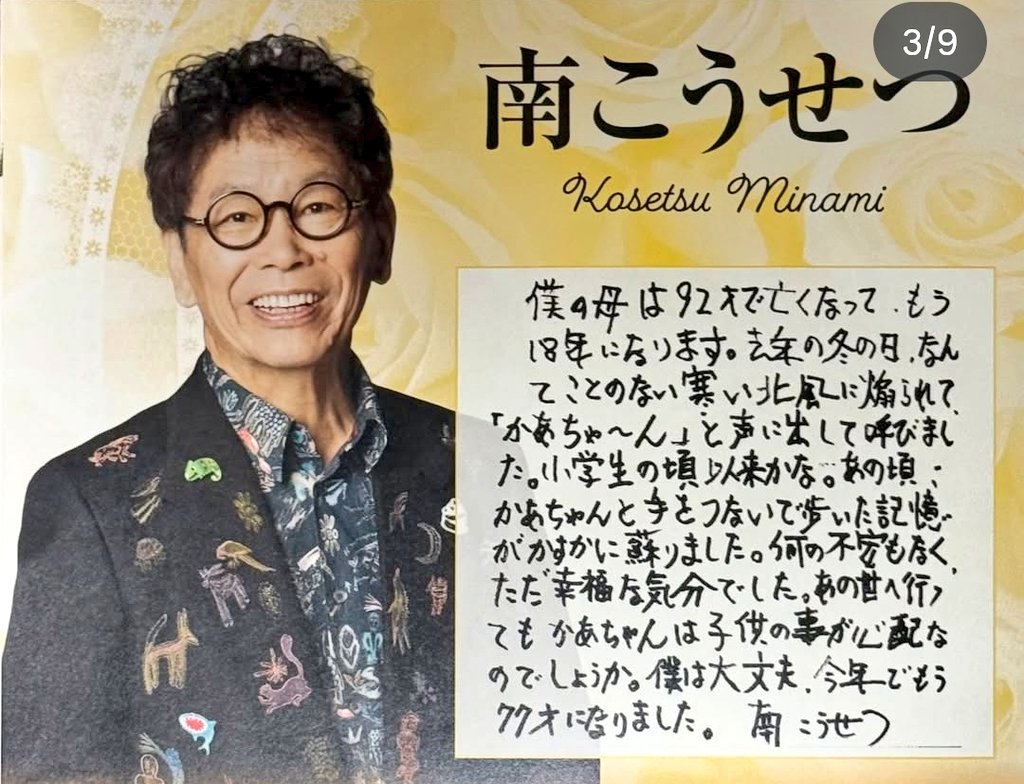 3/9
南こうせつ
Kosetsu Minami
僕の母は92才で亡くなって、もう
18年になります。去年の冬の日、なん
てことのない寒い北風に煽られて、
「かあちゃ～ん」と声に出して呼びまし
た。小学生の頃以来かな…あの頃…
かあちゃんと手をつないで歩いた記憶
がかすかに蘇りました。何の不安もなく、
ただ幸福な気分でした。あの世へ行っ
てもかあちゃんは子供の事が心配な
のでしょうか。僕は大丈夫、今年でもう
77才になりました。 南こうせつ